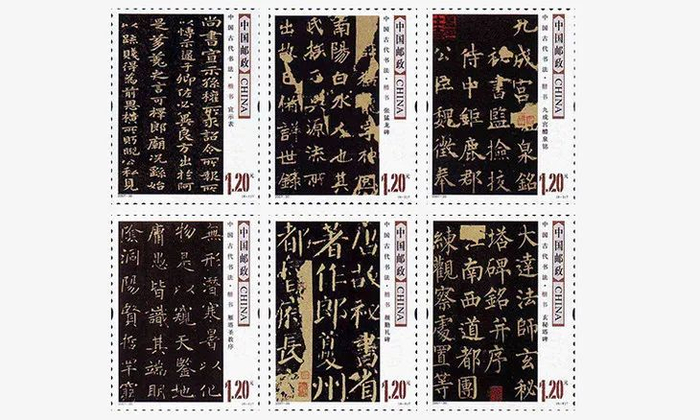 中国邮政 CHINA
中国古代书法·楷书 宣示表
尚書宣示孫權所求詔令所報
所以博示逮于卿佐必冀良方出於阿
是芻蕘之言可擇郎廟況繇始
以疏賤得為前恩橫所盼睨公私見
1.20元
中国邮政 CHINA
中国古代书法·楷书 张猛龙碑
猛龍字神
南陽白水人也其
氏族分興源流所
出故已備詳世錄
1.20元
中国邮政 CHINA
中国古代书法·楷书 九成宫醴泉铭
九成宮泉銘
秘書監檢校
侍中鉅鹿郡
公臣魏徵奉
1.20元
中国邮政 CHINA
中国古代书法·楷书 雁塔圣教序
無形潛寒暑以化
物是以窺天鑑地
庸愚皆識其端明
陰洞陽賢哲罕窮
1.20元
中国邮政 CHINA
中国古代书法·楷书 颜勤礼碑
故秘書省
著作郎夔州
都督府長
1.20元
中国邮政 CHINA
中国古代书法·楷书 玄秘塔碑
大達法師玄秘
塔碑銘并序
江南西道都團
練觀察處置等
1.20元